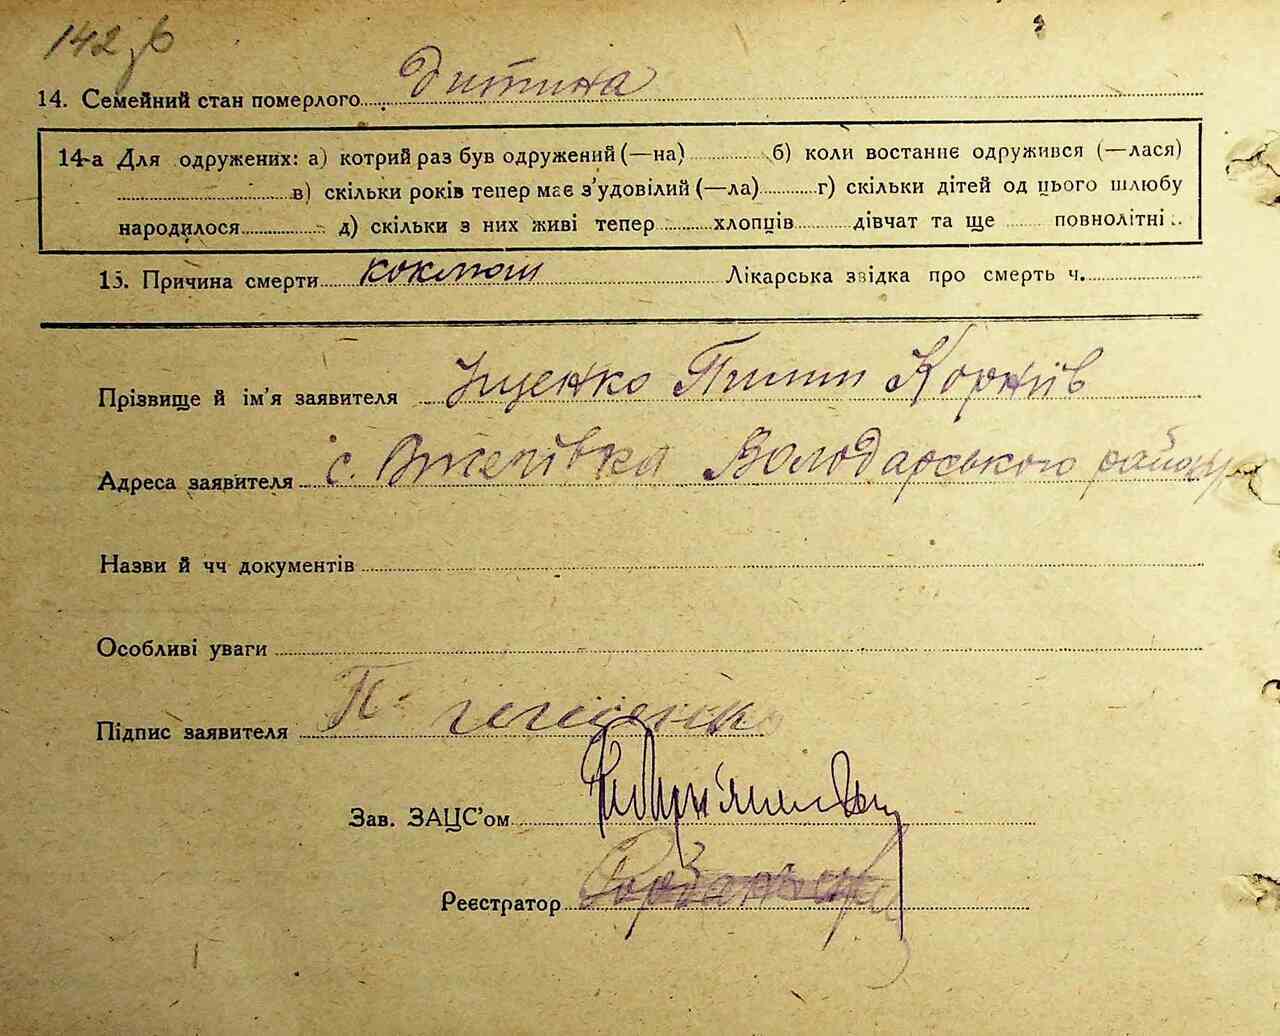 142 зв
14. Семейний стан померлого дитина
14-а Для одружених: а) котрий раз був одружений (—на) б) коли востаннє одружився (—лася)
в) скільки років тепер має з'удовілий (—ла) г) скільки дітей од цього шлюбу
народилося д) скільки з них живі тепер хлопців дівчат та ще повнолітні
15. Причина смерти коклюш Лікарська звідка про смерть ч.
Прізвище й ім'я заявителя Іщенко Пилип Корніїв
Адреса заявителя с. Володарського району
Назви й чч документів
Особливі уваги
Підпис заявителя П.
Зав. ЗАЦС'ом
Реєстратор